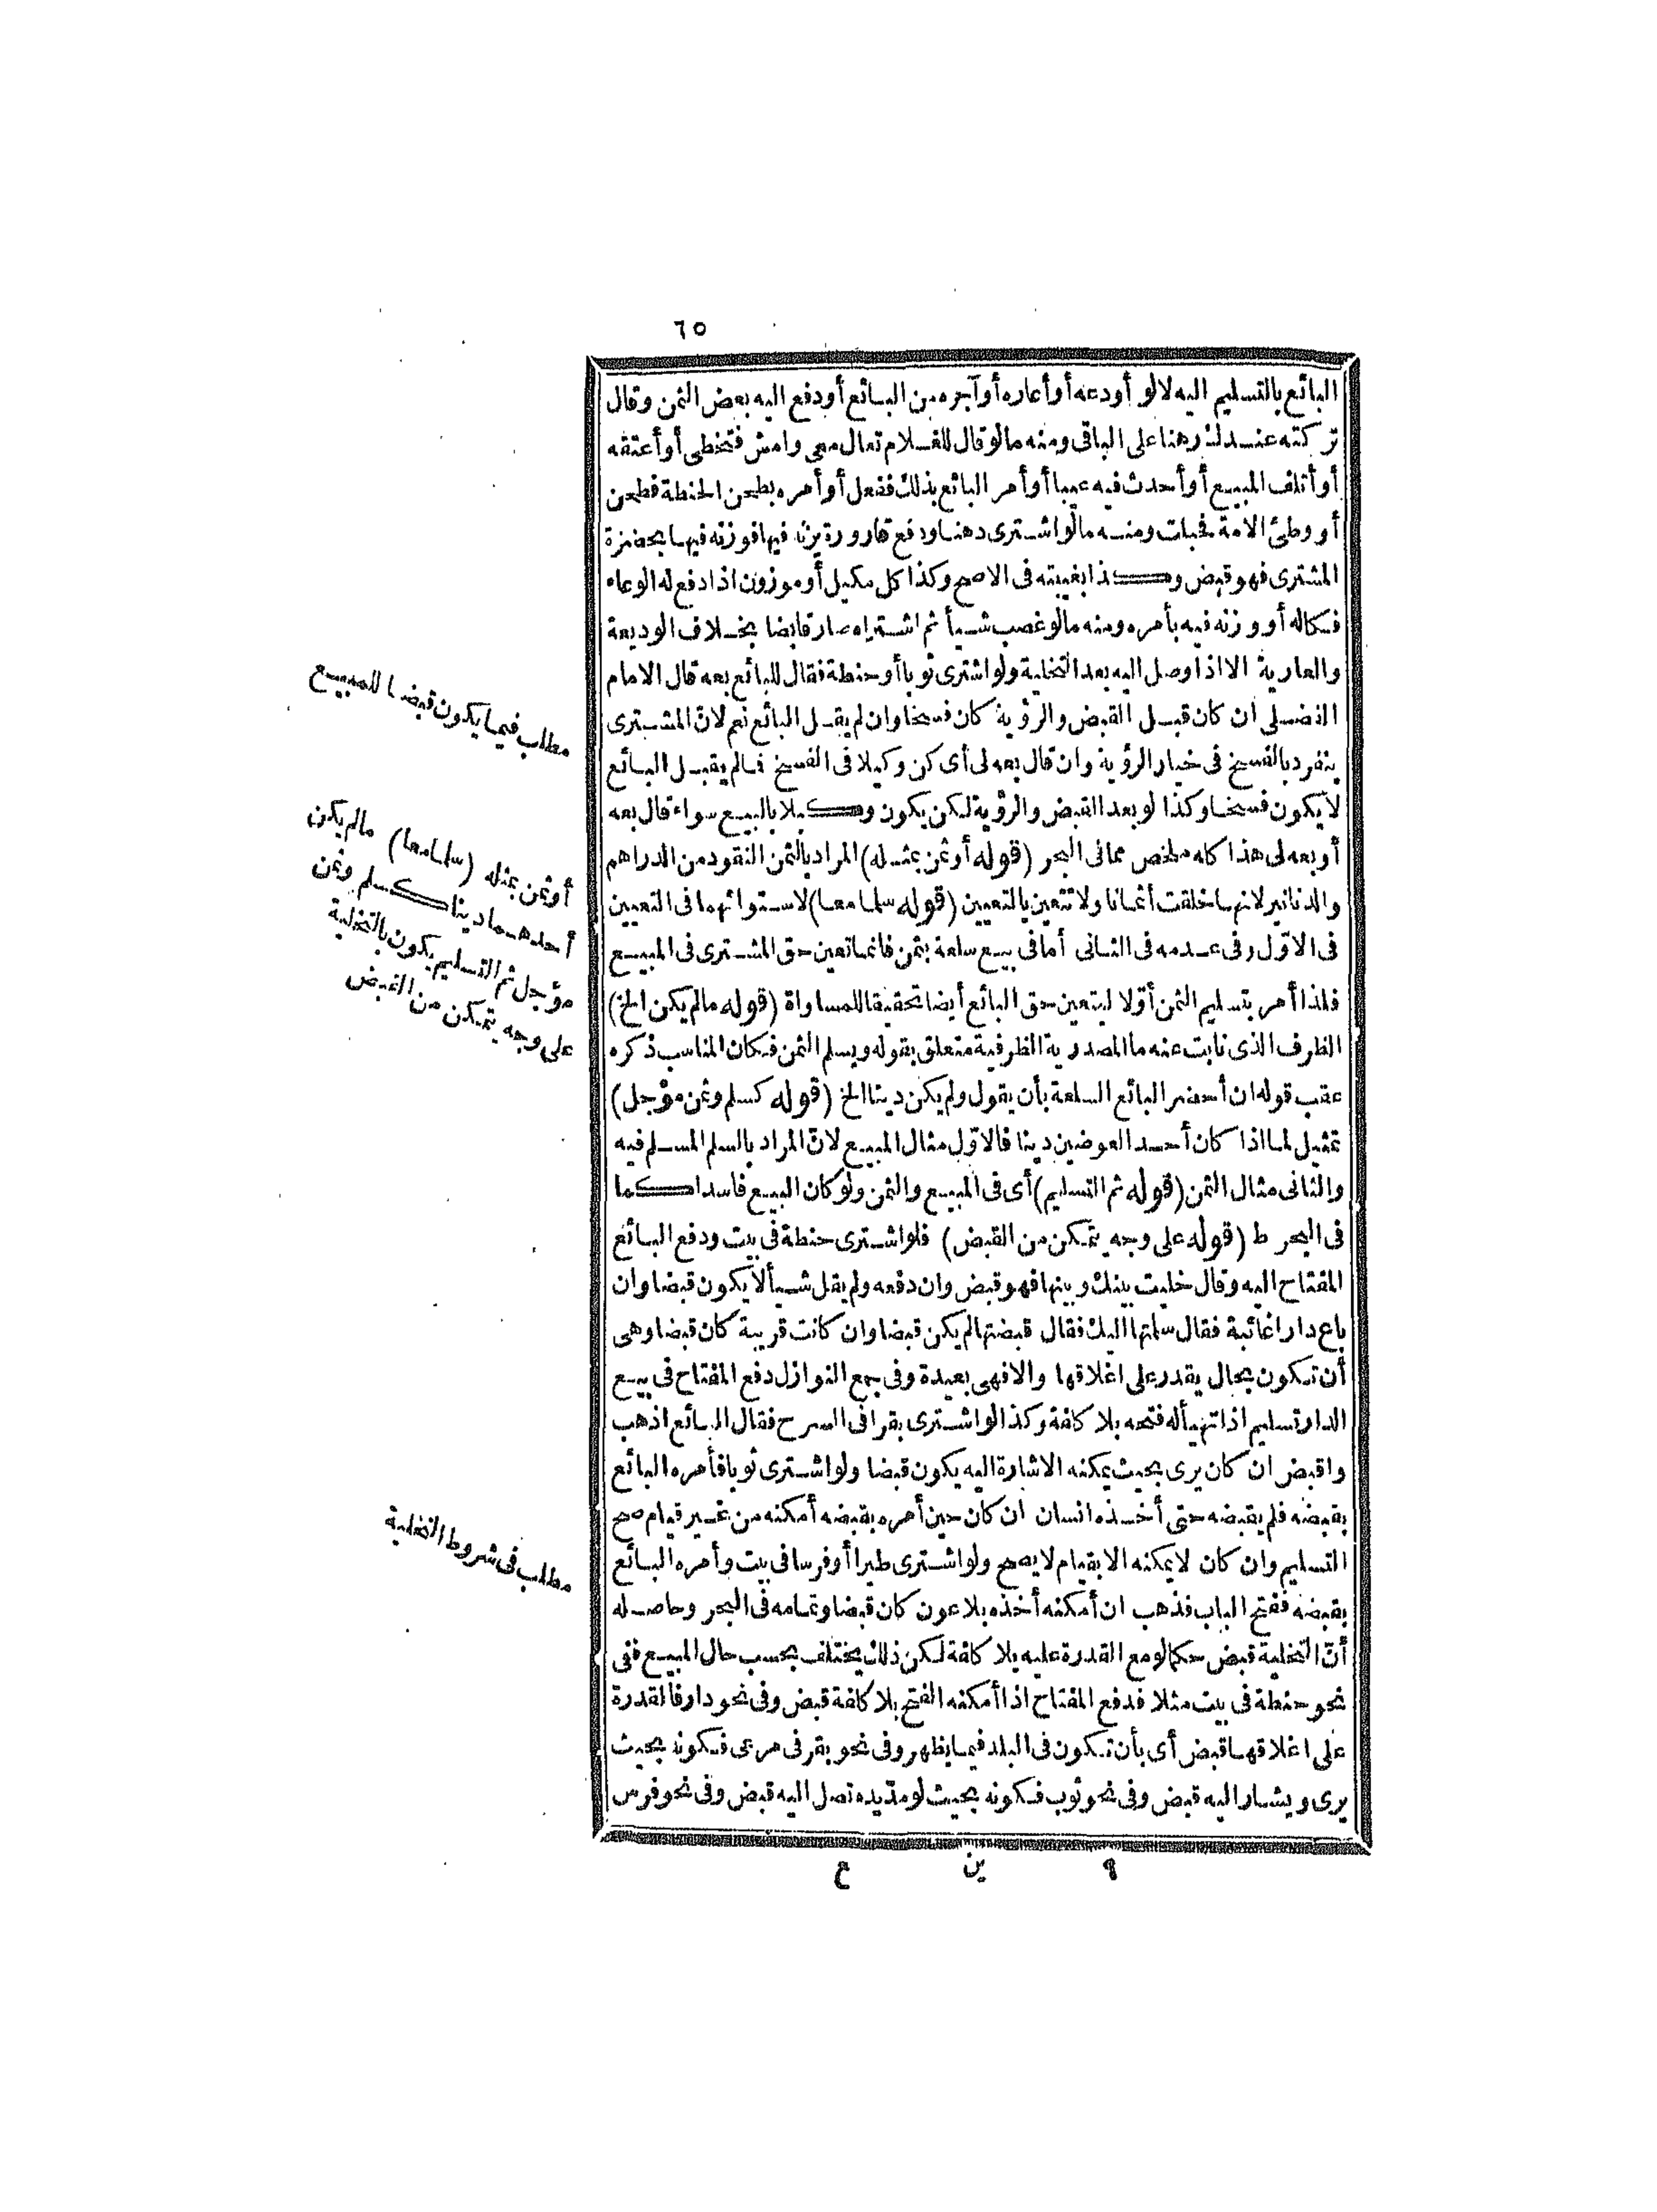 ٦٥
البائع بالتسليم اليه لا لو أودعه أو أعاره أو آجره من البائع أو دفع اليه بعض الثمن وقال
تركته عندك رهنا على الباقى ومنه ما لو قال للغلام تعال معى وامش فتخطى أو أعتقه
أو أتلف المبيع أو أحدث فيه عيبا أو أمر البائع بذلك ففعل أو أمره بطحن الحنطة فطحن
أو وطئ الامة فحبلت ومنه ما لو اشترى دهنا ودفع قارورة يزنه فيها فوزنه فيها بحضرة
المشترى فهو قبض وكذا بغيبته فى الاصح وكذا كل مكيل أو موزون اذا دفع له الوعاء
فكاله أو وزنه فيه بأمره ومنه ما لو غصب شيأ ثم اشتراه صار قابضا بخلاف الوديعة
والعارية الا اذا وصل اليه بعد التخلية ولو اشترى ثوبا أو حنطة فقال للبائع بعه قال الامام
الفضلى ان كان قبل القبض والرؤية كان فسخا وان لم يقل البائع نعم لانّ المشترى
ينفرد بالفسخ فى خيار الرؤية وان قال بعه لى أى كن وكيلا فى الفسخ فما لم يقبل البائع
لا يكون فسخا وكذا لو بعد القبض والرؤية لكن يكون وكيلا بالبيع سواء قال بعه
أو بعه لى هذا كله ملخص مما فى البحر (قوله أو ثمن بمثله) المراد بالثمن النقود من الدراهم
والدنانير لانها خلقت أثمانا ولا تتعين بالتعيين (قوله سلما معا) لاستوائهما فى التعيين
فى الاوّل وفى عدمه فى الثانى أما فى بيع سلعة بثمن فانما تعين حق المشترى فى المبيع
فلذا أمر بتسليم الثمن أوّلا ليتعين حق البائع أيضا تحقيقا للمساواة (قوله ما لم يكن الخ)
الظرف الذى نابت عنه ما المصدرية الظرفية متعلق بقوله ويسلم الثمن فكان المناسب ذكره
عقب قوله ان أحضر البائع السلعة بأن يقول ولم يكن دينا الخ (قوله كسلم وثمن مؤجل)
تمثيل لما اذا كان أحد العوضين دينا فالاوّل مثال المبيع لانّ المراد بالسلم المسلم فيه
والثانى مثال الثمن (قوله ثم التسليم) أى فى المبيع والثمن ولو كان البيع فاسدا كما
فى البحر ط (قوله على وجه يتمكن من القبض) فلو اشترى حنطة فى بيت ودفع البائع
المفتاح اليه وقال خليت بينك وبينها فهو قبض وان دفعه ولم يقل شيأ لا يكون قبضا وان
باع دارا غائبة فقال سلمتها اليك فقال قبضتها لم يكن قبضا وان كانت قريبة كان قبضا وهى
أن تكون بحال يقدر على اغلاقها والا فهى بعيدة وفى جمع النوازل دفع المفتاح فى بيع
الدار تسليم اذا تهيأ له فتحه بلا كلفة وكذا لو اشترى بقرا فى السرح فقال البائع اذهب
واقبض ان كان يرى بحيث يمكنه الاشارة اليه يكون قبضا ولو اشترى ثوبا فأمره البائع
بقبضه فلم يقبضه حتى أخذه انسان ان كان حين أمره بقبضه أمكنه من غير قيام صح
التسليم وان كان لا يمكنه الا بقيام لا يصح ولو اشترى طيرا أو فرسا فى بيت وأمره البائع
بقبضه ففتح الباب فذهب ان أمكنه أخذه بلا عون كان قبضا وتمامه فى البحر وحاصله
أنّ التخلية قبض حكما لو مع القدرة عليه بلا كلفة لكن ذلك يختلف بحسب حال المبيع ففى
نحو حنطة فى بيت مثلا فدفع المفتاح اذا أمكنه الفتح بلا كلفة قبض وفى نحو دار فالقدرة
على اغلاقها قبض أى بأن تكون فى البلد فيما يظهر وفى نحو بقر فى مرعى فكونه بحيث
يرى ويشار اليه قبض وفى نحو ثوب فكونه بحيث لو مدّ يده تصل اليه قبض وفى نحو فرس
مطلب فيما يكون قبضا للمبيع
أو ثمن بمثله (سلما معا) ما لم يكن
أحدهما دينا كسلم وثمن
مؤجل ثم التسليم يكون بالتخلية
على وجه يتمكن من القبض
مطلب فى شروط التخلية
٩ ين ع